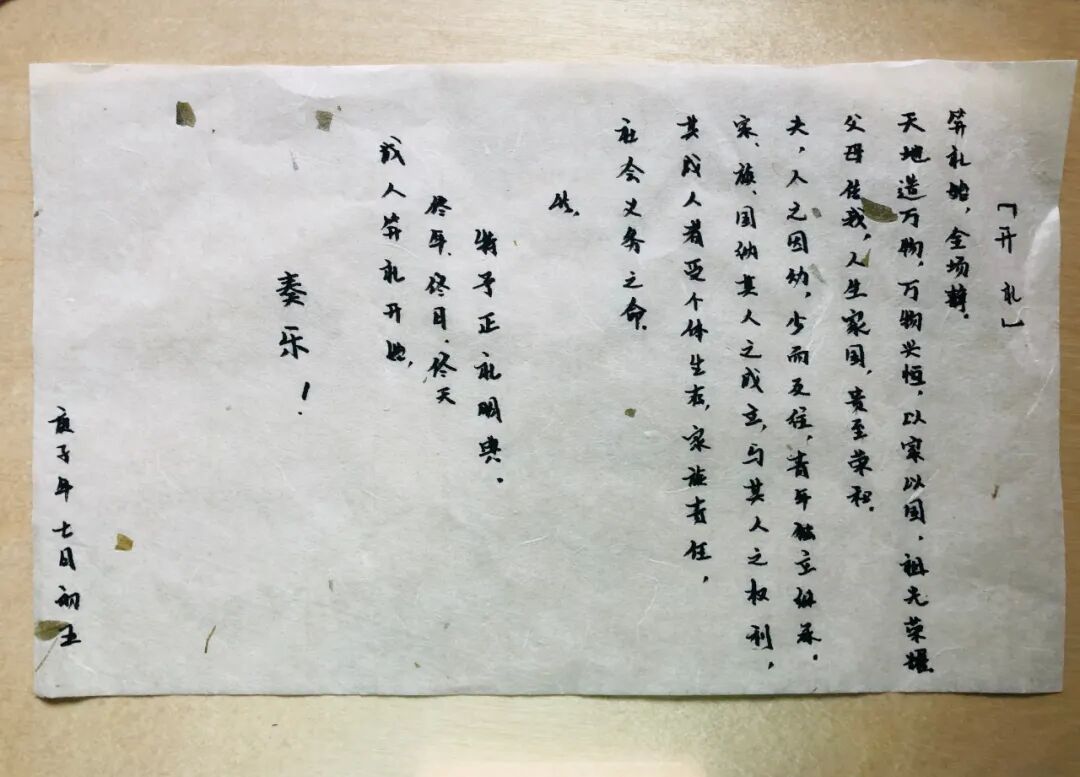 「开礼」
笄礼始，全场静。
天地造万物，万物兴恒，以家以国，祖先荣耀
父母传我，人生家国，贵至荣和。
夫，人之因幼，少而及往，青年独立继承。
家、族、国纳其人之成主，与其人之权利，
其成人者受个体生存，家族责任，
社会义务之命。
此，
特予正礼明典。
佟年、佟日、佟天
成人笄礼开始，
奏乐！
庚子年七月初五